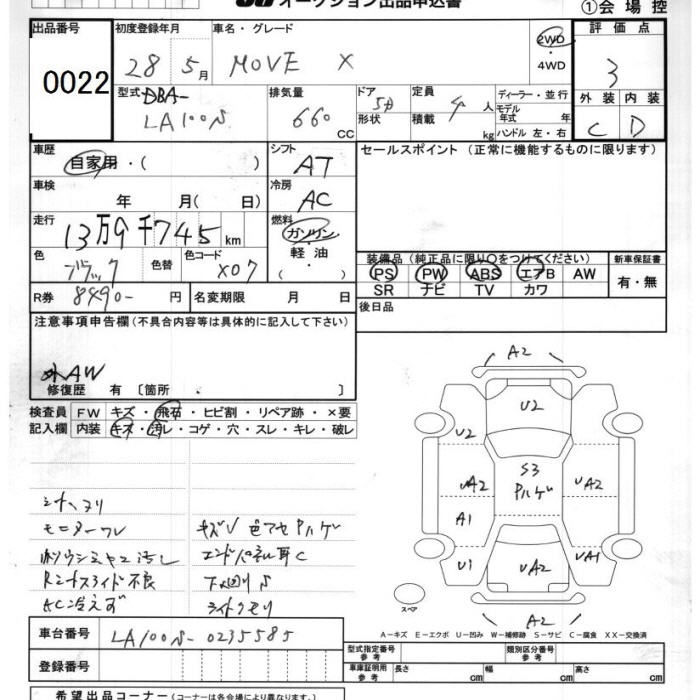 オークション出品申込書
①会場控
出品番号 初度登録年月 車名・グレード 評価点
0022
28 5月 MOVE X 2WD・4WD 3
型式 排気量 ドア形状 定員 積載 ディーラー・並行 外装 内装
DBA-
LA100S 660 CC 5D 4人 kg モデル年式 年 C D
ハンドル 左・右
車歴 シフト セールスポイント (正常に機能するものに限ります)
自家用・( ) AT
車検 冷房
年 月( 日) AC
走行 燃料
13万9千745km ガソリン・軽油
色 色替 色コード 装備品 (純正品に限り○をつけてください) 新車保証書
ブラック X07 PS PW ABS エアB AW 有・無
SR ナビ TV カワ
R券 8490- 円 名変期限 月 日 後日品
注意事項申告欄(不具合内容等は具体的に記入して下さい)
外AW
修復歴 有 〔箇所 . 〕
検査員 FW キズ・飛石・ヒビ割・リペア跡・×要
記入欄 内装 キズ・汚レ・コゲ・穴・スレ・キレ・破レ
A2
U2
U2
S3
Pハゲ
A2
UA2
A1
U1
UA1
UA2
A2
モニターワレ キズV 色アセ Pハゲ
エンドパネル耳C
Rミナスライド不良 下回りS
AC冷えず ライトクモリ
スペア
A－キズ E－エクボ U－凹み W－補修跡 S－サビ C－腐食 XX－交換済
車台番号 LA100S-0235585
型式指定番号 参考 類別区分番号 参考
登録番号 車庫証明用 参考 長さ cm 幅 cm 高さ cm
希望出品コーナー (コーナーは各会場により異なります。)